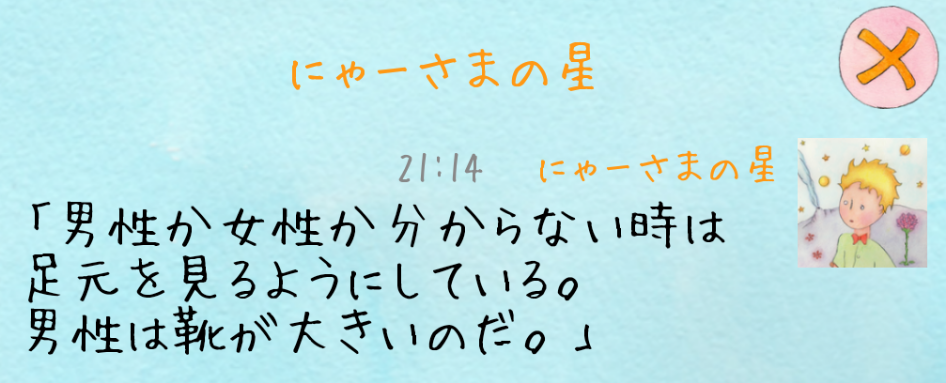 にゃーさまの星
21:14 にゃーさまの星
「男性か女性か分からない時は
足元を見るようにしている。
男性は靴が大きいのだ。」